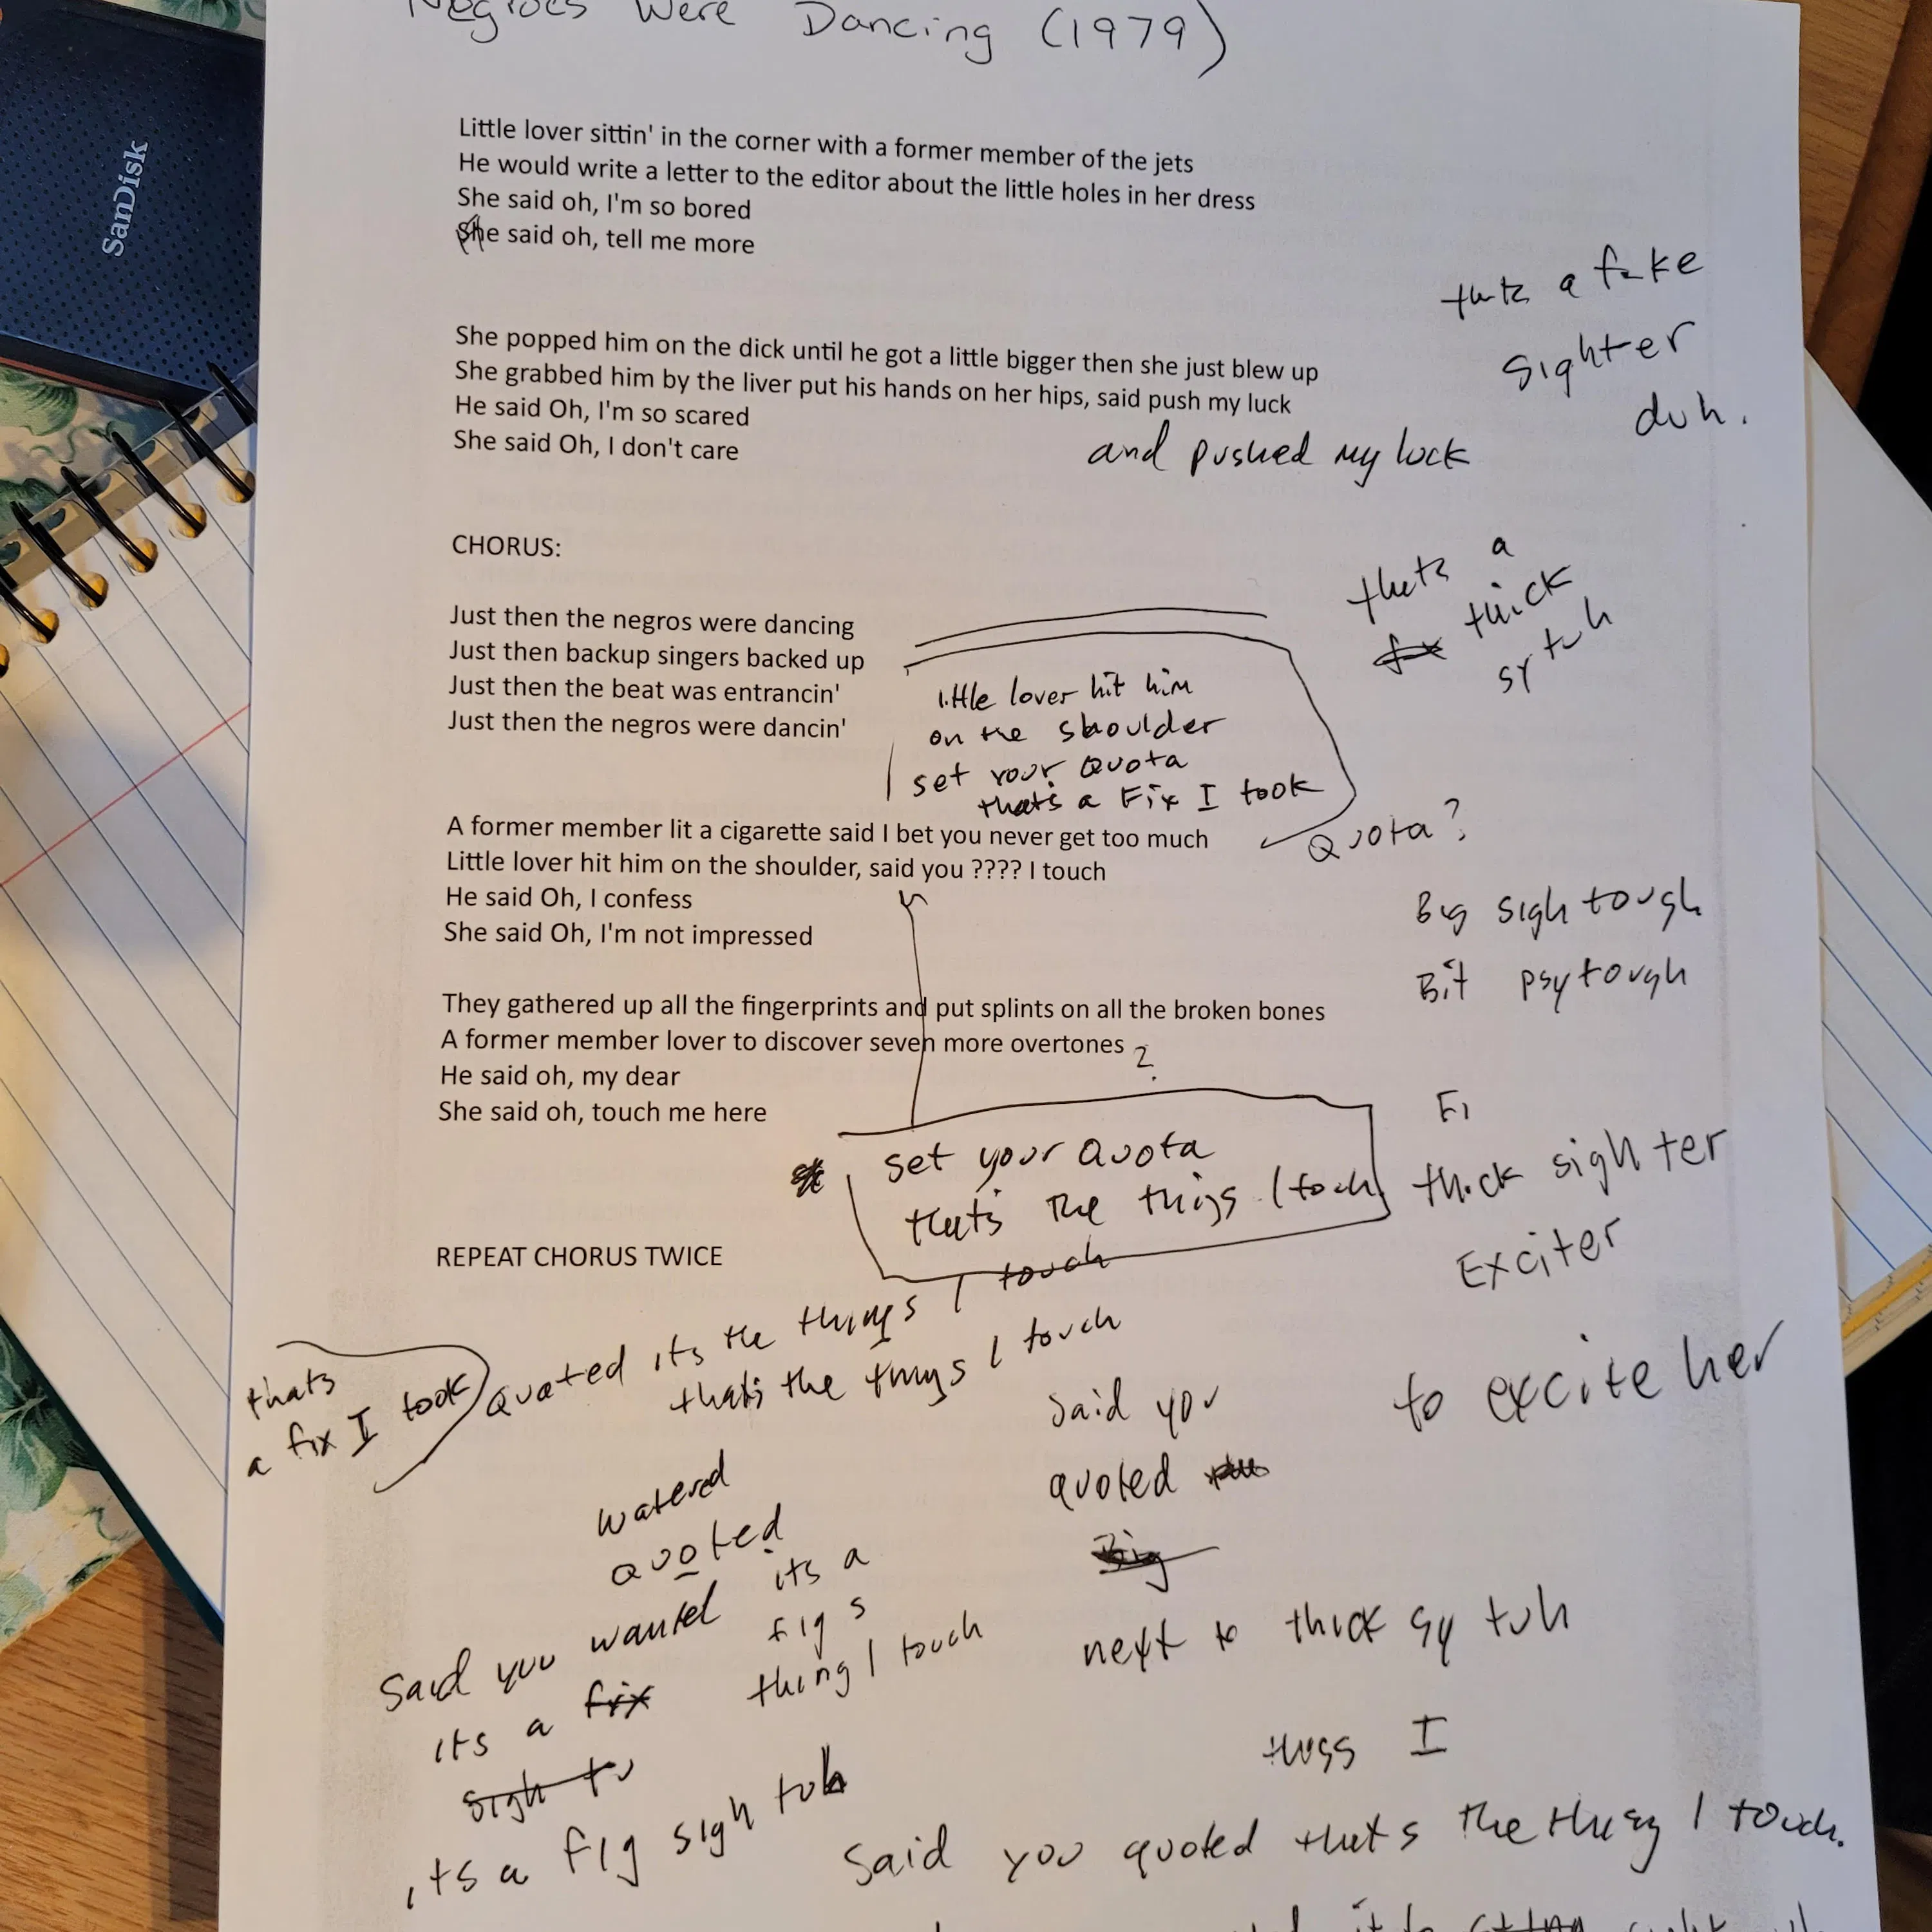 Negroes Were Dancing (1979)
SanDisk
Little lover sittin' in the corner with a former member of the jets
He would write a letter to the editor about the little holes in her dress
She said oh, I'm so bored
She said oh, tell me more
thats a fake
sighter
duh.
She popped him on the dick until he got a little bigger then she just blew up
She grabbed him by the liver put his hands on her hips, said push my luck
He said Oh, I'm so scared
She said Oh, I don't care
and pushed my luck
CHORUS:
Just then the negros were dancing
Just then backup singers backed up
Just then the beat was entrancin'
Just then the negros were dancin'
thats a
thick
sy tuh
little lover hit him
on the shoulder
set your Quota
thats a Fix I took
Quota?
A former member lit a cigarette said I bet you never get too much
Little lover hit him on the shoulder, said you ???? I touch
He said Oh, I confess
She said Oh, I'm not impressed
Big sigh tough
Bit psy tough
They gathered up all the fingerprints and put splints on all the broken bones
A former member lover to discover seven more overtones
?
He said oh, my dear
She said oh, touch me here
set your Quota
thats the things I touch
Fi
thick sighter
Exciter
to excite her
REPEAT CHORUS TWICE
thats
a fix I took
Quoted its the things I touch
thats the things I touch
said you
quoted
Big
next to thick sy tuh
watered
quoted
Said you wanted
its a fix
sigh tu
its a
figs
thing I touch
its a fig sigh tuh
I
Said you quoted thats the thing I touch.